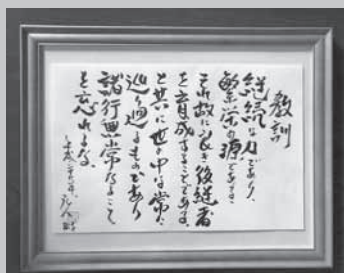 教訓
継続は力であり、
繁栄の源である。
それ故に良き後継者
を育成することである。
と共に世の中は常に
巡り廻るものであり
諸行無常なること
を忘れるな。